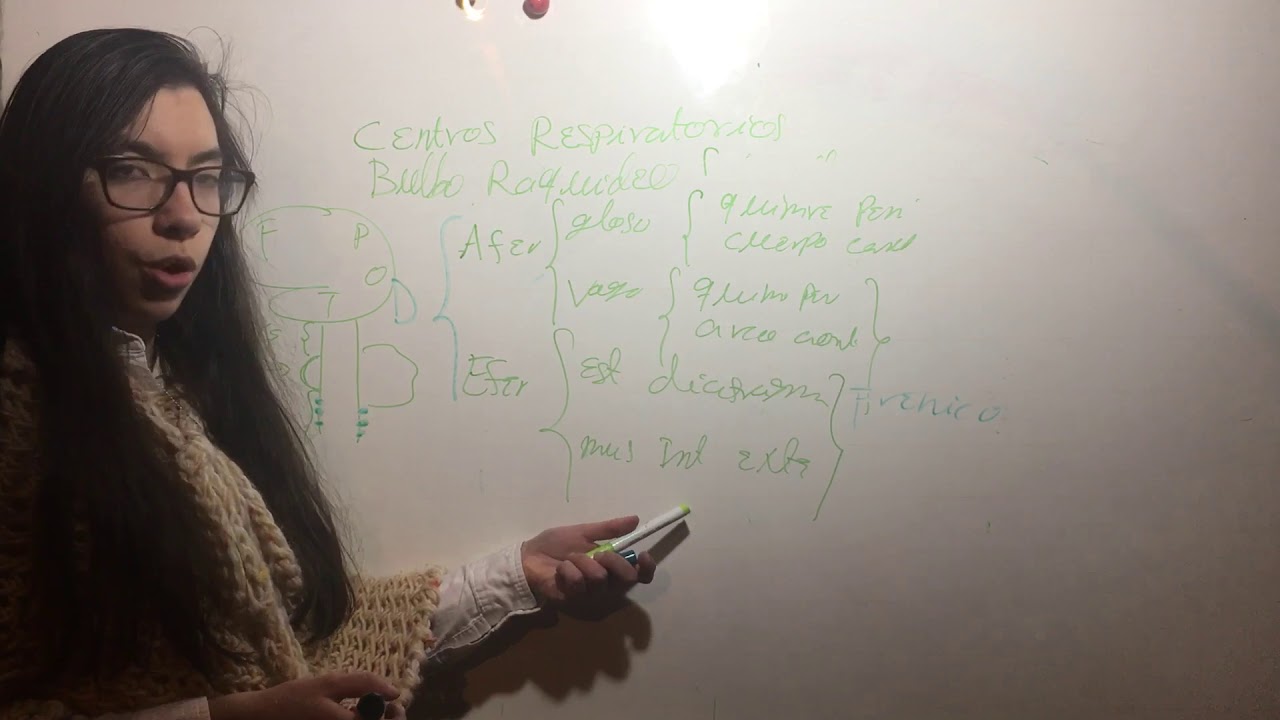 Centros Respiratorios
Bulbo Raquideo
F P
O
T D
Afer gloso quimire Peri
cuerpo
Vago quimo per
arco
Efer Est diafragma Frenico
mus Int exte